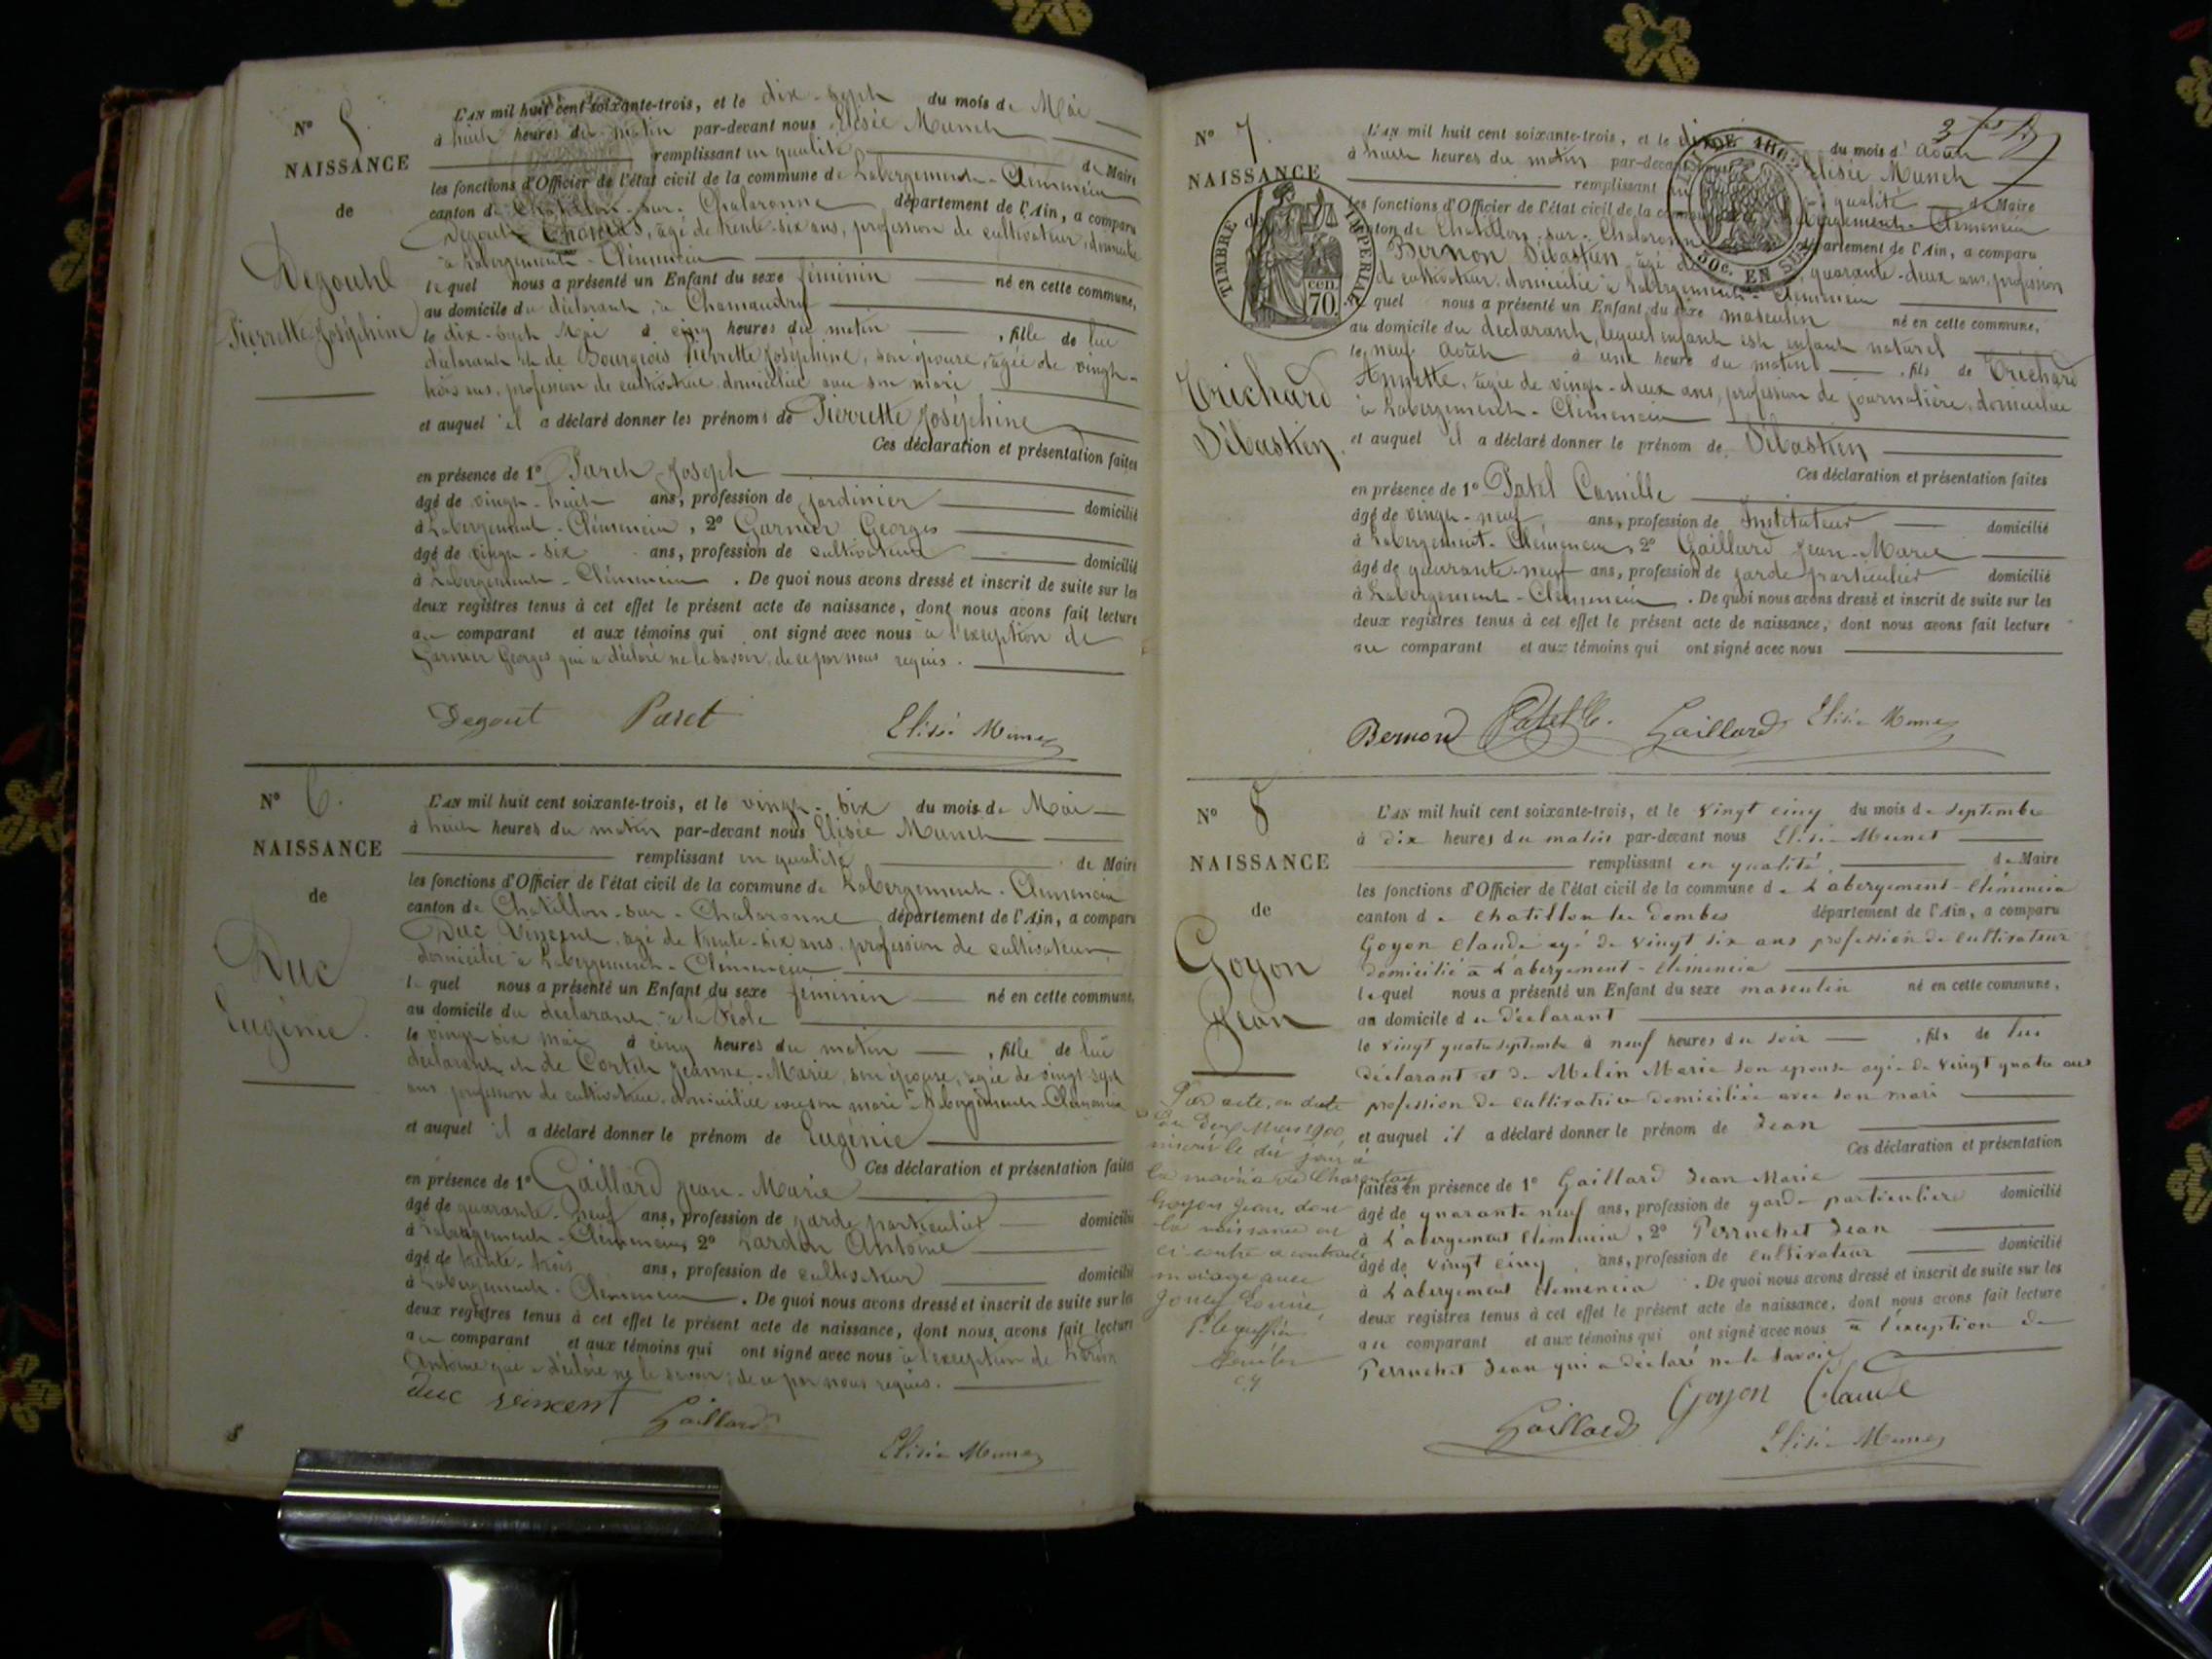 N° 5.
NAISSANCE
de
Degouth
Pierrette Joséphine
L'AN mil huit cent soixante-trois, et le dix-sept du mois de Mai
à huit heures du matin par-devant nous Elisée Munet
remplissant en qualité de Maire
les fonctions d'Officier de l'état civil de la commune de Labergement-Clémencia
canton de Chatillon-sur-Chalaronne département de l'Ain, a comparu
Degout Thomas, âgé de trente-six ans, profession de cultivateur, domicilié
à Labergement-Clémencia
lequel nous a présenté un Enfant du sexe féminin né en cette commune,
au domicile du déclarant, à Chamaudry
le dix-sept Mai à cinq heures du matin, fille de lui
déclarant et de Bourgeois Pierrette Joséphine, son épouse, âgée de vingt-
trois ans, profession de cultivatrice, domiciliée avec son mari
et auquel il a déclaré donner les prénoms de Pierrette Joséphine
Ces déclaration et présentation faites
en présence de 1° Paret Joseph
âgé de vingt-huit ans, profession de jardinier domicilié
à Labergement-Clémencia, 2° Garnier Georges
âgé de vingt-six ans, profession de cultivateur domicilié
à Labergement-Clémencia. De quoi nous avons dressé et inscrit de suite sur les
deux registres tenus à cet effet le présent acte de naissance, dont nous avons fait lecture
au comparant et aux témoins qui ont signé avec nous à l'exception de
Garnier Georges qui a déclaré ne le savoir, de ce par nous requis.
Degout Paret Elisée Munet
N° 6.
NAISSANCE
de
Duc
Eugénie.
L'AN mil huit cent soixante-trois, et le vingt-six du mois de Mai
à huit heures du matin par-devant nous Elisée Munet
remplissant en qualité de Maire
les fonctions d'Officier de l'état civil de la commune de Labergement-Clémencia
canton de Chatillon-sur-Chalaronne département de l'Ain, a comparu
Duc Vincent, âgé de trente-six ans, profession de cultivateur
domicilié à Labergement-Clémencia
lequel nous a présenté un Enfant du sexe féminin né en cette commune,
au domicile du déclarant à la
le vingt-six mai à cinq heures du matin, fille de lui
déclarant et de Cortet Jeanne-Marie, son épouse, âgée de vingt-sept
ans profession de cultivatrice, domiciliée avec son mari à Labergement-Clémencia
et auquel il a déclaré donner le prénom de Eugénie
Ces déclaration et présentation faites
en présence de 1° Gaillard Jean-Marie
âgé de quarante-neuf ans, profession de garde particulier domicilié
à Labergement-Clémencia, 2° Lardon Antoine
âgé de trente-trois ans, profession de cultivateur domicilié
à Labergement-Clémencia. De quoi nous avons dressé et inscrit de suite sur les
deux registres tenus à cet effet le présent acte de naissance, dont nous avons fait lecture
au comparant et aux témoins qui ont signé avec nous à l'exception de Lardon
Antoine qui a déclaré ne le savoir, de ce par nous requis.
duc vincent Gaillard Elisée Munet
N° 7.
NAISSANCE
TIMBRE IMPERIAL
70 cen
Trichard
Sébastien.
L'AN mil huit cent soixante-trois, et le dix du mois d'Août
à huit heures du matin par-devant nous Elisée Munet
remplissant en qualité de Maire
les fonctions d'Officier de l'état civil de la commune de Labergement-Clémencia
canton de Chatillon-sur-Chalaronne département de l'Ain, a comparu
Bernon Sébastien, âgé de quarante-deux ans, profession
de cultivateur, domicilié à Labergement-Clémencia
lequel nous a présenté un Enfant du sexe masculin né en cette commune,
au domicile du déclarant, lequel enfant est enfant naturel
le neuf Août à une heure du matin, fils de Trichard
Annette, âgée de vingt-deux ans, profession de journalière, domiciliée
à Labergement-Clémencia
et auquel il a déclaré donner le prénom de Sébastien
Ces déclaration et présentation faites
en présence de 1° Patel Camille
âgé de vingt-neuf ans, profession de Instituteur domicilié
à Labergement-Clémencia, 2° Gaillard Jean-Marie
âgé de quarante-neuf ans, profession de garde particulier domicilié
à Labergement-Clémencia. De quoi nous avons dressé et inscrit de suite sur les
deux registres tenus à cet effet le présent acte de naissance, dont nous avons fait lecture
au comparant et aux témoins qui ont signé avec nous
Bernon Patel C. Gaillard Elisée Munet
N° 8
NAISSANCE
de
Goyon
Jean
L'AN mil huit cent soixante-trois, et le vingt cinq du mois de septembre
à dix heures du matin par-devant nous Elisée Munet
remplissant en qualité de Maire
les fonctions d'Officier de l'état civil de la commune de L'abergement-Clémencia
canton de Chatillon les Dombes département de l'Ain, a comparu
Goyon Claude agé de vingt six ans profession de cultivateur
domicilié à L'abergement-Clémencia
lequel nous a présenté un Enfant du sexe masculin né en cette commune,
au domicile du déclarant
le vingt quatre septembre à neuf heures du soir, fils de lui
déclarant et de Melin Marie son epouse agée de vingt quatre ans
profession de cultivatrice domiciliée avec son mari
et auquel il a déclaré donner le prénom de Jean
Ces déclaration et présentation
faites en présence de 1° Gaillard Jean Marie
âgé de quarante neuf ans, profession de garde particuliere domicilié
à L'abergement Clemencia, 2° Perruchet Jean
âgé de vingt cinq ans, profession de cultivateur domicilié
à L'abergement Clemencia. De quoi nous avons dressé et inscrit de suite sur les
deux registres tenus à cet effet le présent acte de naissance, dont nous avons fait lecture
au comparant et aux témoins qui ont signé avec nous à l'exception de
Perruchet Jean qui a déclaré ne le savoir
Par acte, en date
du dix Mars 1900
inscrit le dit jour à
la mairie de Charentay
Goyon Jean, dont
la naissance est
ci contre a contracté
mariage avec
Louise,
P. le greffier
Gaillard Goyon Claude
Elisée Munet